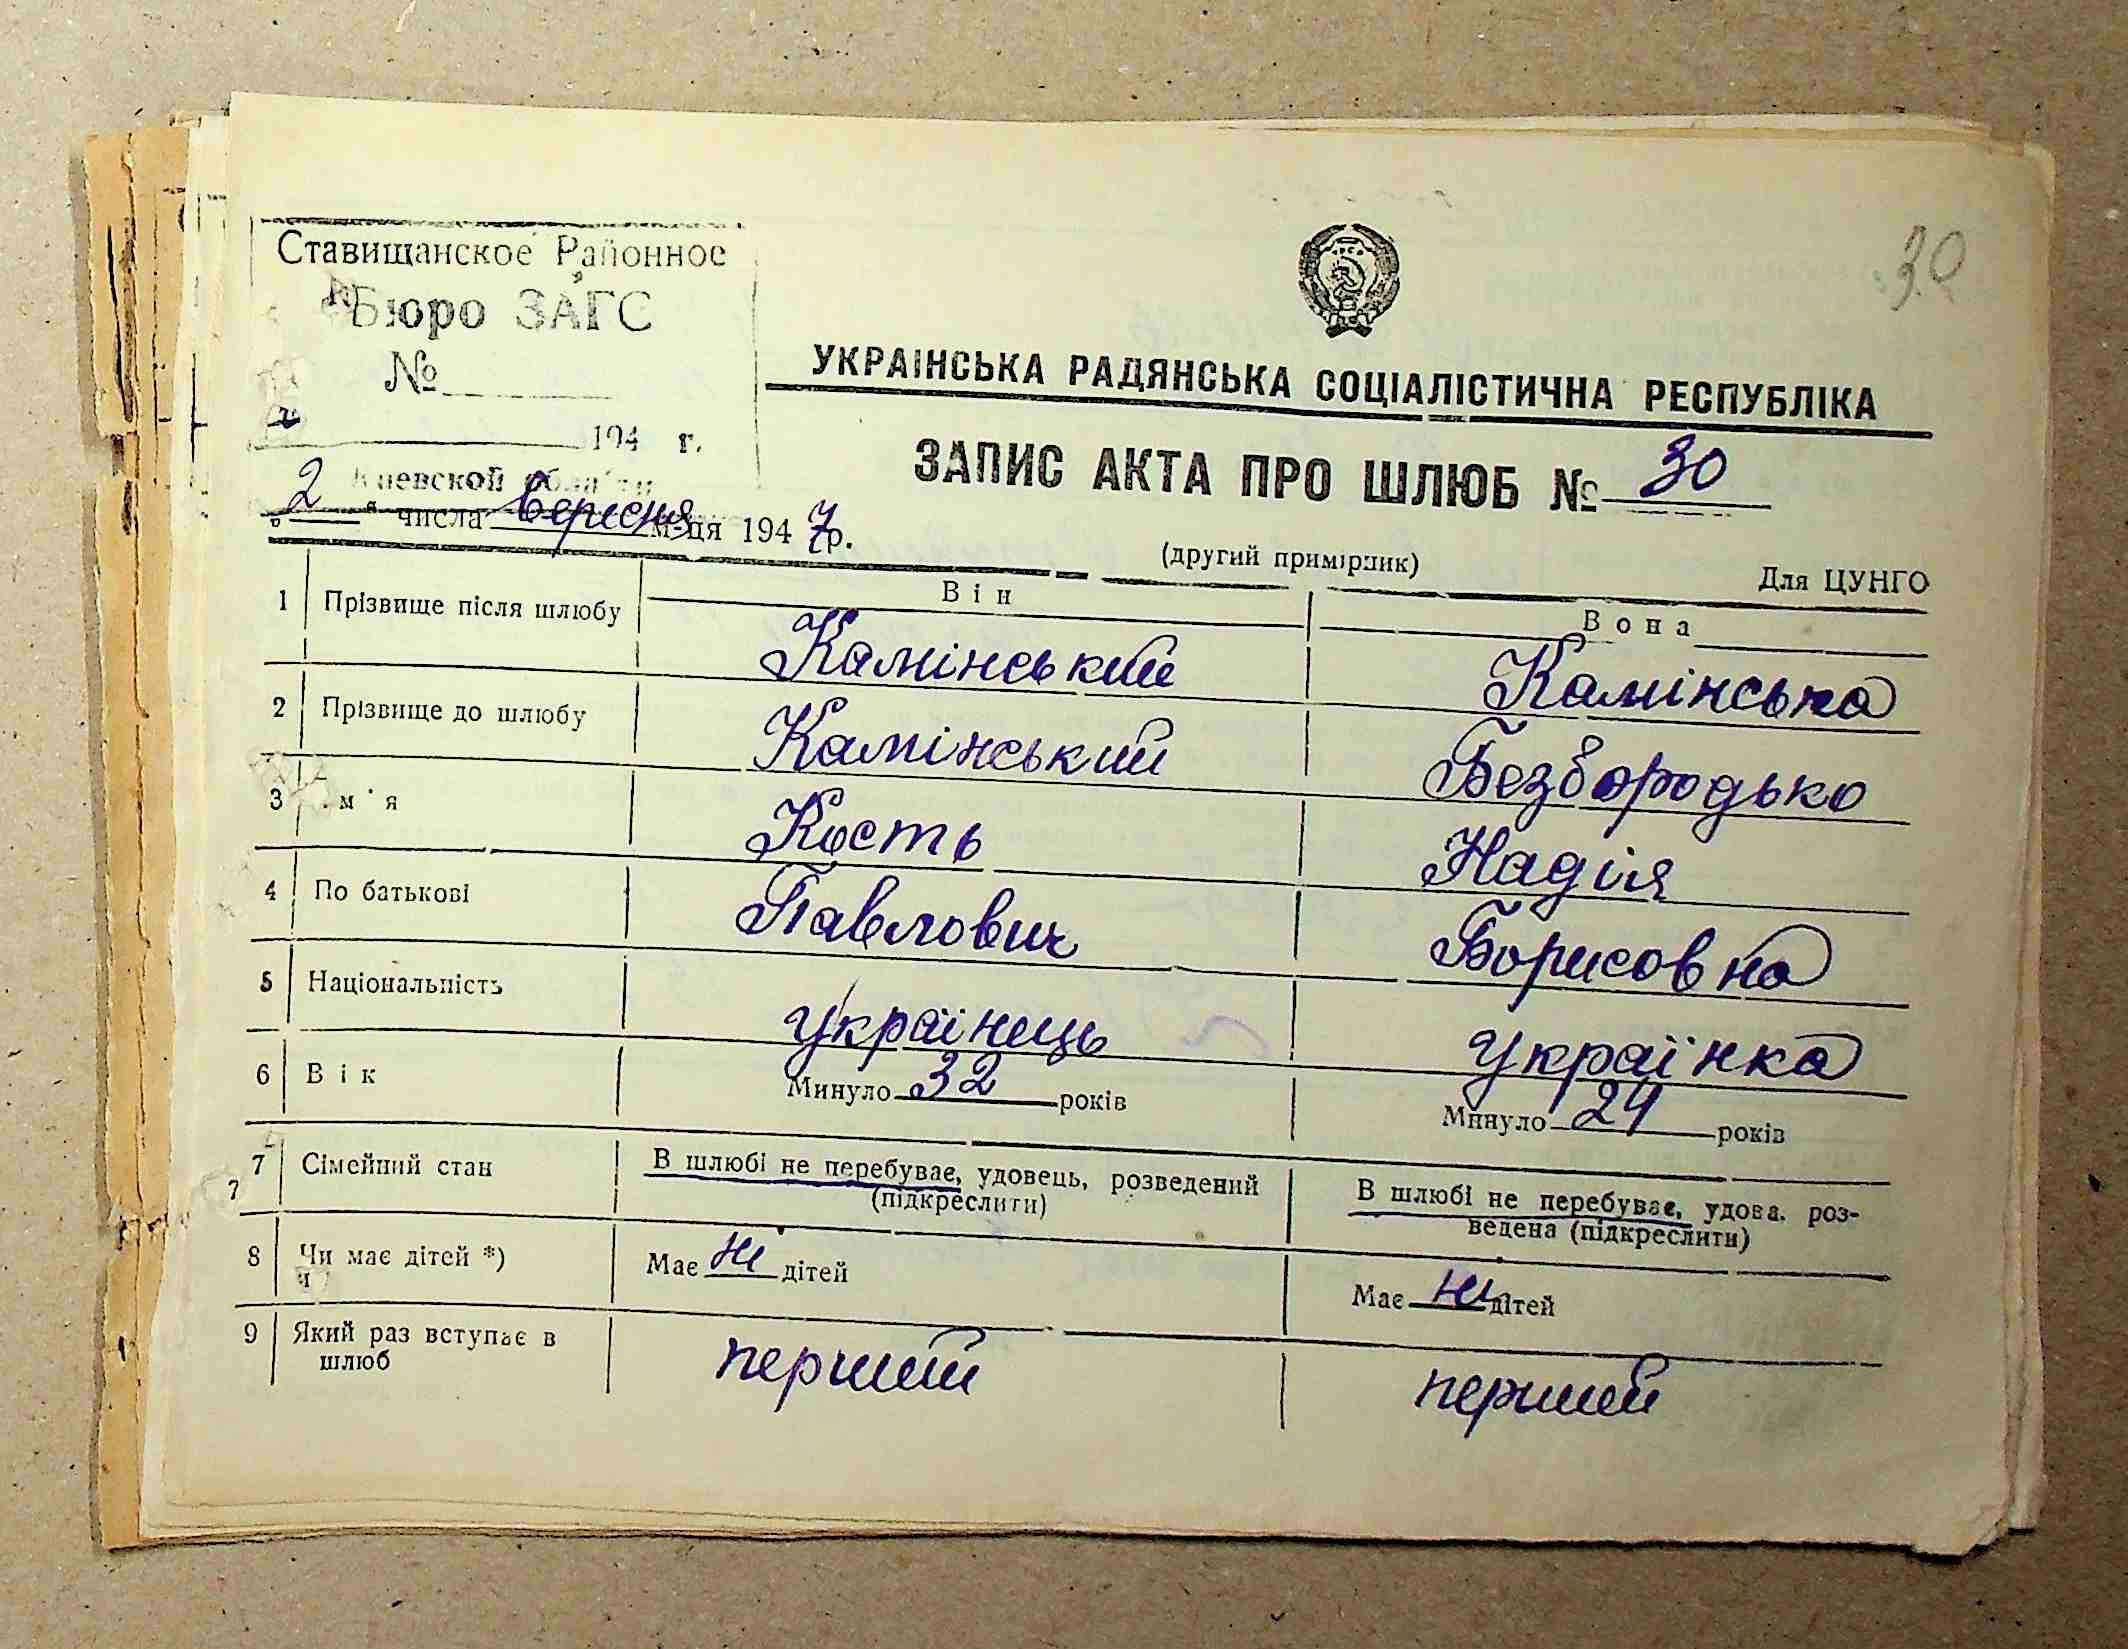 30
Ставищанское Районное
Бюро ЗАГС
№
194 г.
Киевской области
УКРАІНСЬКА РАДЯНСЬКА СОЦІАЛІСТИЧНА РЕСПУБЛІКА
ЗАПИС АКТА ПРО ШЛЮБ № 30
„2“ числа Вересня м-ця 1947 р.
(другий примірник)
Для ЦУНГО
Він Вона
1 Прізвище після шлюбу Камінський Камінська
2 Прізвище до шлюбу Камінський Безбородько
3 м'я Кость Надія
4 По батькові Павлович Борисовна
5 Національність українець українка
6 Вік Минуло 32 років Минуло 24 років
7 Сімейний стан В шлюбі не перебуває, удовець, розведений (підкреслити) В шлюбі не перебуває, удова, роз-
ведена (підкреслити)
7
8 Чи має дітей *) Має ні дітей Має ні дітей
9 Який раз вступає в
шлюб перший перший